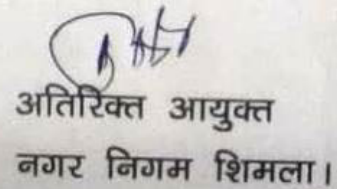 अतिरिक्त आयुक्त
नगर निगम शिमला।